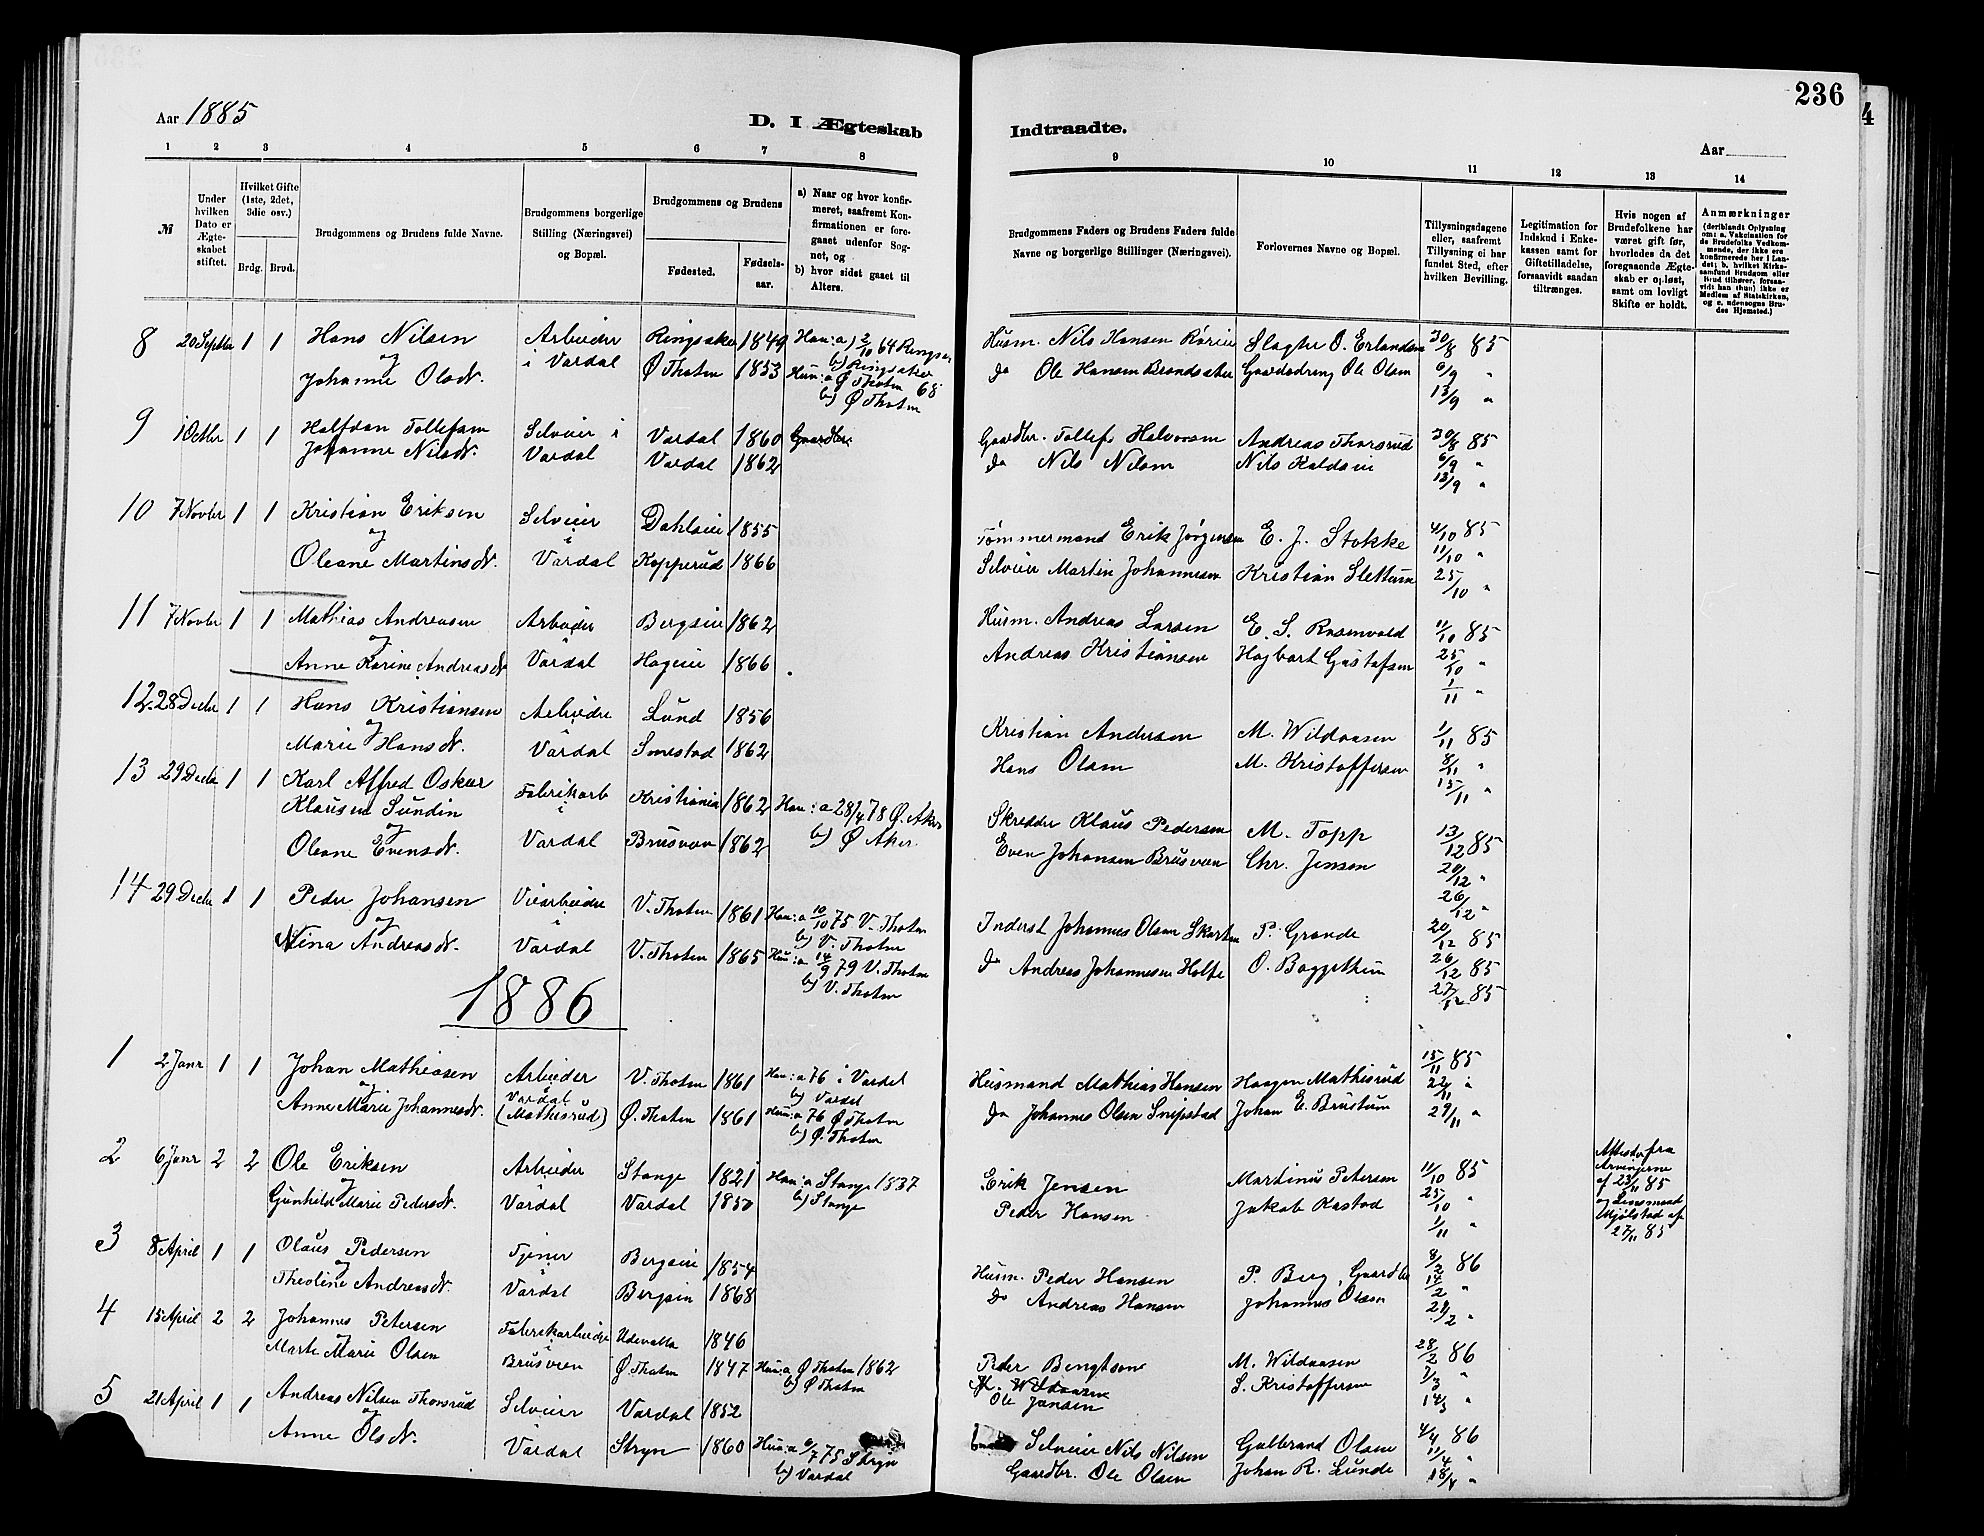 236
4
Aar 1885
D. I Ægteskab
Indtraadte.
Aar
1 2 3 4 5 6 7 8 9 10 11 12 13 14
№
Under hvilken Dato er Ægteskabet stiftet.
Hvilket Gifte (1ste, 2det, 3die osv.)
Brdg. Brud.
Brudgommens og Brudens fulde Navne.
Brudgommens borgerlige Stilling (Næringsvei) og Bopæl.
Brudgommens og Brudens
Fødested.
Fødselsaar.
a) Naar og hvor konfirmeret, saafremt Konfirmationen er foregaaet udenfor Sognet, og
b) hvor sidst gaaet til Alters.
Brudgommens Faders og Brudens Faders fulde Navne og borgerlige Stillinger (Næringsvei).
Forlovernes Navne og Bopæl.
Tillysningsdagene eller, saafremt Tillysning ei har fundet Sted, efter hvilken Bevilling.
Legitimation for Indskud i Enkekassen samt for Giftetilladelse, forsaavidt saadan tiltrænges.
Hvis nogen af Brudefolkene har været gift før, hvorledes da det foregaaende Ægteskab er opløst, samt om lovligt Skifte er holdt.
Anmærkninger (deriblandt Oplysning om: a. Vakcination for de Brudefolks Vedkommende, der ikke ere konfirmerede her i Landet; b. hvilket Kirkesamfund Brudgom eller Brud tilhører, forsaavidt han (hun) ikke er Medlem af Statskirken, og c. udensogns Brudes Hjemsted.)
8 20 Septbr 1 1 Hans Nilsen Arbeider Ringsaker 1849 Han: a) 2/10 64 Ringsaker Husm. Nils Hansen Slagter O. Erlandsen 30/8 85
og i Vardal b) Ringsaker
Johanne Olsdt. Ø Thoten 1853 Hun: a Ø Thoten 68 do Ole Hansen Brandsater Gaardsdreng Ole Olsen 6/9 "
b) Ø Thoten 13/9 "
9 1 Octbr 1 1 Halfdan Tollefsen Selveier i Vardal 1860 Gaardbr. Gaardbr. Tollef Halvorsen Andreas Thorsrud 30/8 85
Johanne Nilsdt. Vardal Vardal 1862 do Nils Nilsen Nils Kaldseie 6/9 "
13/9 "
10 7 Novbr 1 1 Kristian Eriksen Selveier Dahlseie 1855 Tømmermand Erik Jørgensen E. J. Stokke 4/10 85
og i 11/10 "
Oleane Martinsdt. Vardal Kopperud 1866 Selveier Martin Johannesen Kristian Slettum 25/10 "
11 7 Novbr 1 1 Mathias Andreasen Arbeider Bergseie 1862 Husm. Andreas Larsen E. S. Rosenvold 11/10 85
og
Anne Karine Andreasdt Vardal Hageie 1866 Andreas Kristiansen Hagbart Gustafsen 25/10 "
1/11 "
12 28 Decbr 1 1 Hans Kristiansen Arbeider Lund 1856 Kristian Andersen M. Wildaasen 1/11 85
og
Marie Hansdt. Vardal Smestad 1862 Hans Olsen M. Kristoffersen 8/11 "
15/11 "
13 29 Decbr 1 1 Karl Alfred Oskar Fabrikarb Kristiania 1862 Han: a 28/4 78 Ø. Aker Skredder Klaus Pedersen M. Topp 13/12 85
Klausen Sundin i b) Ø Aker
og
Oleane Evensdt. Vardal Brusveen 1862 Even Johansen Brusveen Chr. Jensen 20/12 "
26/12 "
14 29 Decbr 1 1 Peder Johansen Veiarbeider V. Thoten 1861 Han: a 10/10 75 V. Thoten Inderst Johannes Olsen P. Grande 20/12 85
og i b) V. Thoten
Nina Andreasdt. Vardal V. Thoten 1865 Hun: a 14/9 79 V. Thoten do Andreas Johannesen O. Baggethun 26/12 85
b) V. Thoten 27/12 85
1886
1 2 Janr 1 1 Johan Mathiasen Arbeider V. Thoten 1861 Han: a 76 i Vardal Husmand Mathias Hansen Haagen Mathisrud 15/11 85
og Vardal b) Vardal 22/11 "
Anne Marie Johannesdt. (Mathisrud) Ø. Thoten 1861 Hun: a 76 Ø Thoten do Johannes Olsen Snipstad Johan E. Brustum 29/11 "
b) Ø. Thoten
2 6 Janr 2 2 Ole Eriksen Arbeider Stange 1821 Han: a Stange 1837 Erik Jensen Martinus Petersen 11/10 85 Attest fra Arvingerne af 23/11 85 og Lensmand Mjølstad af 27/11 85
og b) Stange
Gunhild Marie Pedersdt. Vardal Vardal 1850 Peder Hansen Jakob Kastad 25/10 "
1/11 "
3 8 April 1 1 Olaus Pedersen Tjener Bergseie 1854 Husm. Peder Hansen P. Berg, Gaardbr 8/2 86
og i
Theoline Andreasdt. Vardal Bergseie 1868 do Andreas Hansen Johannes Olsen 14/2 "
21/2 "
4 15 April 2 2 Johannes Petersen Fabrikarbeider Udevalla 1846 Peder Bengtson M. Wildaasen 28/2 86
og i
Marte Marie Olsen Brusveen Ø. Thoten 1847 Hun: a Ø Thoten 1862 M. Wildaasen S. Kristoffersen 7/3 "
b) Ø Thoten Ole Jansen 14/3 "
5 21 April 1 1 Andreas Nilsen Thorsrud Selveier Vardal 1852 Selveier Nils Nilsen Gulbrand Olsen 4/4 86
og
Anne Olsdt. Vardal Stryn 1860 Hun: a 6/7 75 Stryn Gaardbr. Ole Olsen Johan R. Lunde 11/4 "
b) Vardal 18/4 "